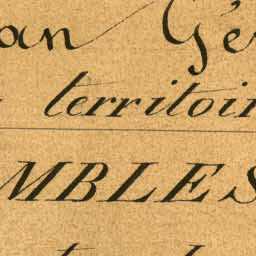 an Gé
territoir
MBLES